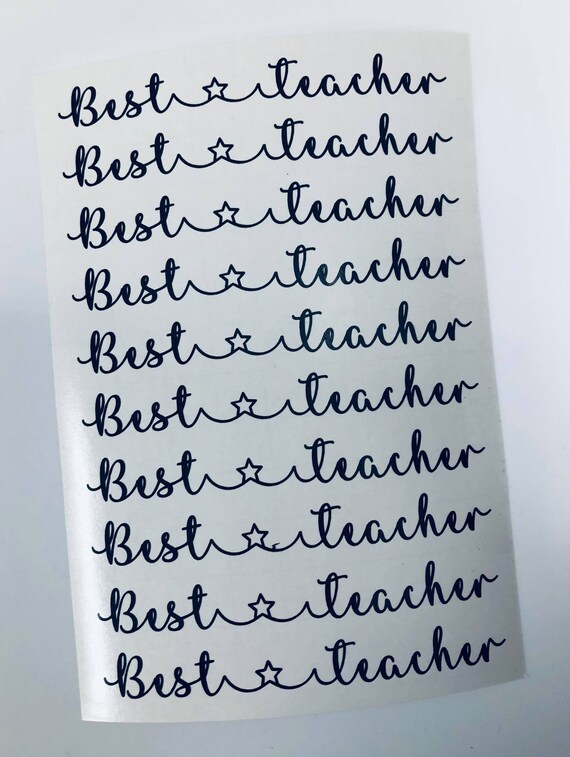 Best ☆ teacher
Best ☆ teacher
Best ☆ teacher
Best ☆ teacher
Best ☆ teacher
Best ☆ teacher
Best ☆ teacher
Best ☆ teacher
Best ☆ teacher
Best ☆ teacher